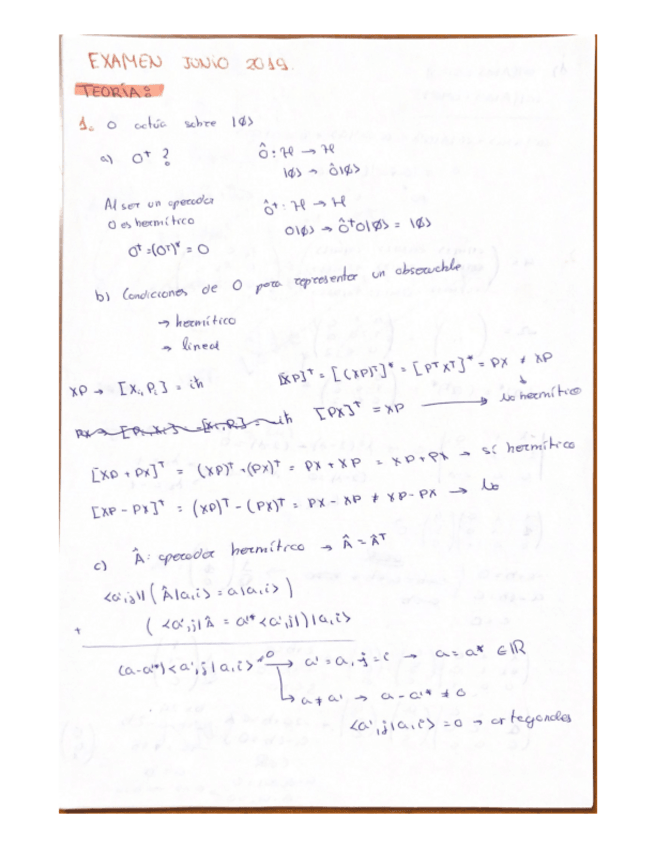 EXAMEN JUNIO 2019.
TEORÍA:
1. O actúa sobre |ø>
a) O† ?
Ô : H → H
|ø> → Ô|ø>
Al ser un operador
O es hermítico
O† = (Oᵀ)* = O
Ô† : H → H
O|ø> → Ô†O|ø> = |ø>
b) Condiciones de O para representar un observable
→ hermítico
→ lineal
XP → [Xi, Pi] = iħ
[XP]† = [(XP)ᵀ]* = [PᵀXᵀ]* = PX ≠ XP
[PX]† = XP → No hermítico
[XP + PX]† = (XP)† + (PX)† = PX + XP = XP + PX → sí hermítico
[XP - PX]† = (XP)† - (PX)† = PX - XP ≠ XP - PX → No
c) Â: operador hermítico → Â = †
<a',j| ( Â|a,i> = a|a,i> )
+ ( <a',j|Â = a'* <a',j| ) |a,i>
(a-a'*) <a',j|a,i> = 0 → a' = a, j = i → a = a* ∈ ℝ
↳ a ≠ a' → a - a'* ≠ 0
<a',j|a,i> = 0 → ortogonales